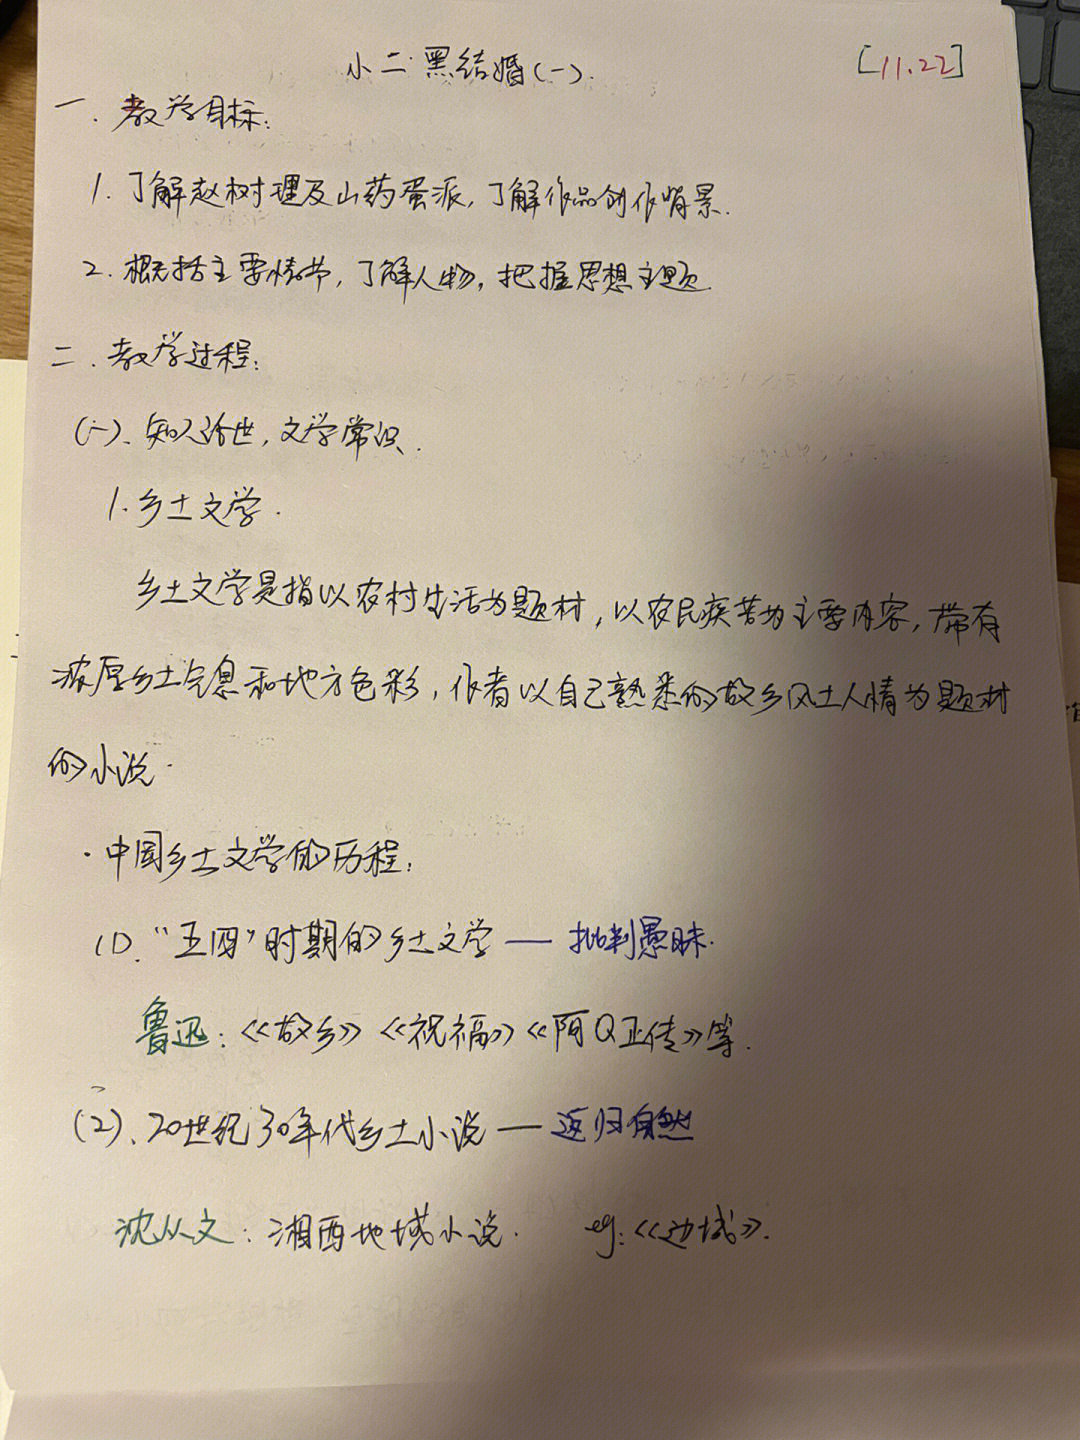 小二黑结婚(一). [11.22]
一. 教学目标:
1. 了解赵树理及山药蛋派, 了解作品创作背景.
2. 概括主要情节, 了解人物, 把握思想主题.
二. 教学过程:
(一)、知人论世, 文学常识.
1. 乡土文学.
乡土文学是指以农村生活为题材, 以农民疾苦为主要内容, 带有
浓厚乡土气息和地方色彩, 作者以自己熟悉的故乡风土人情为题材
的小说.
·中国乡土文学的历程:
(1)、“五四”时期的乡土文学 — 批判愚昧.
鲁迅: 《故乡》《祝福》《阿Q正传》等.
(2)、20世纪30年代乡土小说 — 返归自然
沈从文: 湘西地域小说. eg:《边城》.